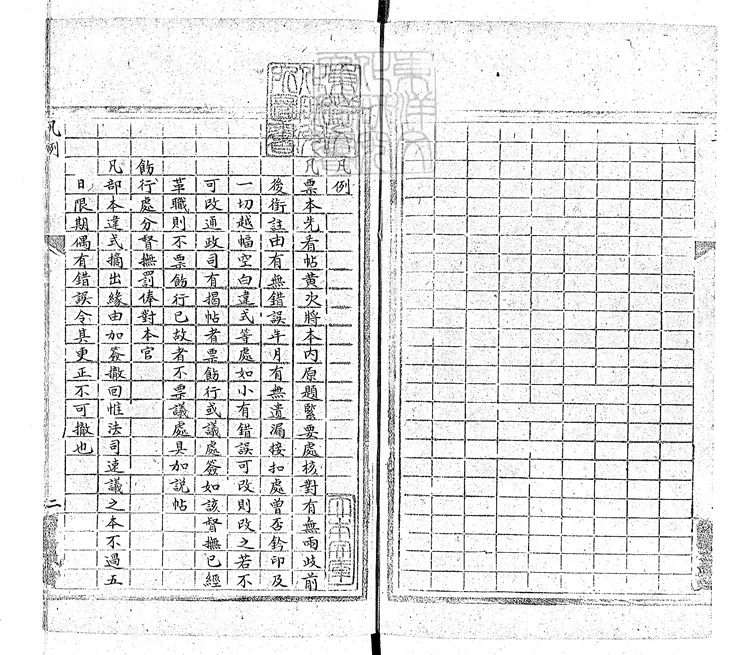 凡例
凡票本先看帖黄次將本内原題緊要處核對有無兩歧前
後銜註由有無錯誤年月有無遺漏接扣處曾否鈐印及
一切越幅空白違式等處如小有錯誤可改則改之若不
可改通政司有揭帖者票飭行或議處簽如該督撫已經
革職則不票飭行已故者不票議處具加說帖
飭行處分督撫罰俸對本官
凡部本違式摘出緣由加簽撤回惟法司速議之本不過五
日限期偶有錯誤令其更正不可撤也
凡例
二